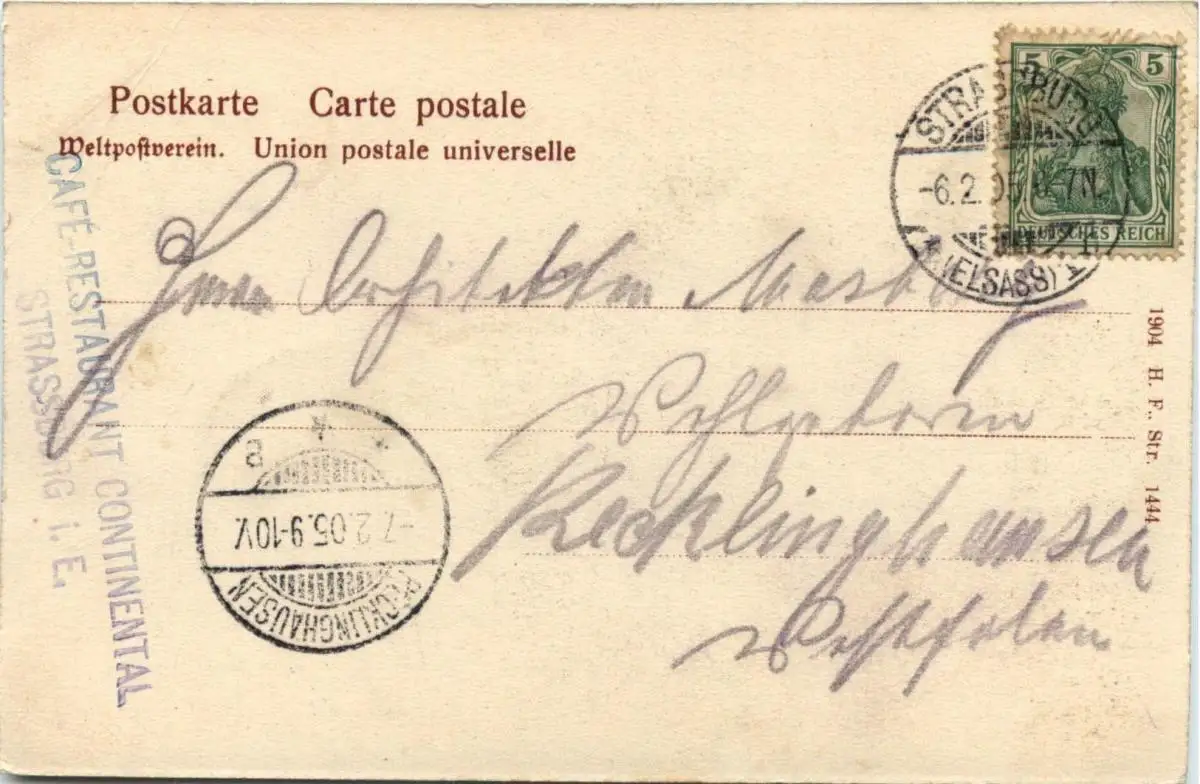 Postkarte Carte postale
Weltpostverein. Union postale universelle
5 5
DEUTSCHES REICH
STRASSBURG
-6.2.05 6-7N.
(ELSASS) 1
Herrn Architekten
Wohlgeboren
Recklinghausen
Westfalen
RECKLINGHAUSEN
-7.2.05.9-10V.
* * *
a
CAFÉ-RESTAURANT CONTINENTAL
STRASSBURG i. E.
1904 H. F., Str. 1444